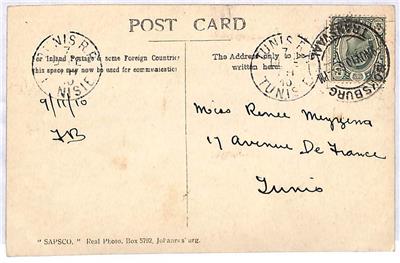 POST CARD
For Inland Postage & some Foreign Countries
this space may now be used for communication
The Address only to be
written here.
TUNIS R.P.
7
TUNISIE
TUNIS R.P.
7
TUNISIE
BOKSBURG
TRANSVAAL
9/11/10
Miss Renee Meyzena
17 Avenue De France
Tunis
"SAPSCO," Real Photo, Box 5792, Johannesburg.